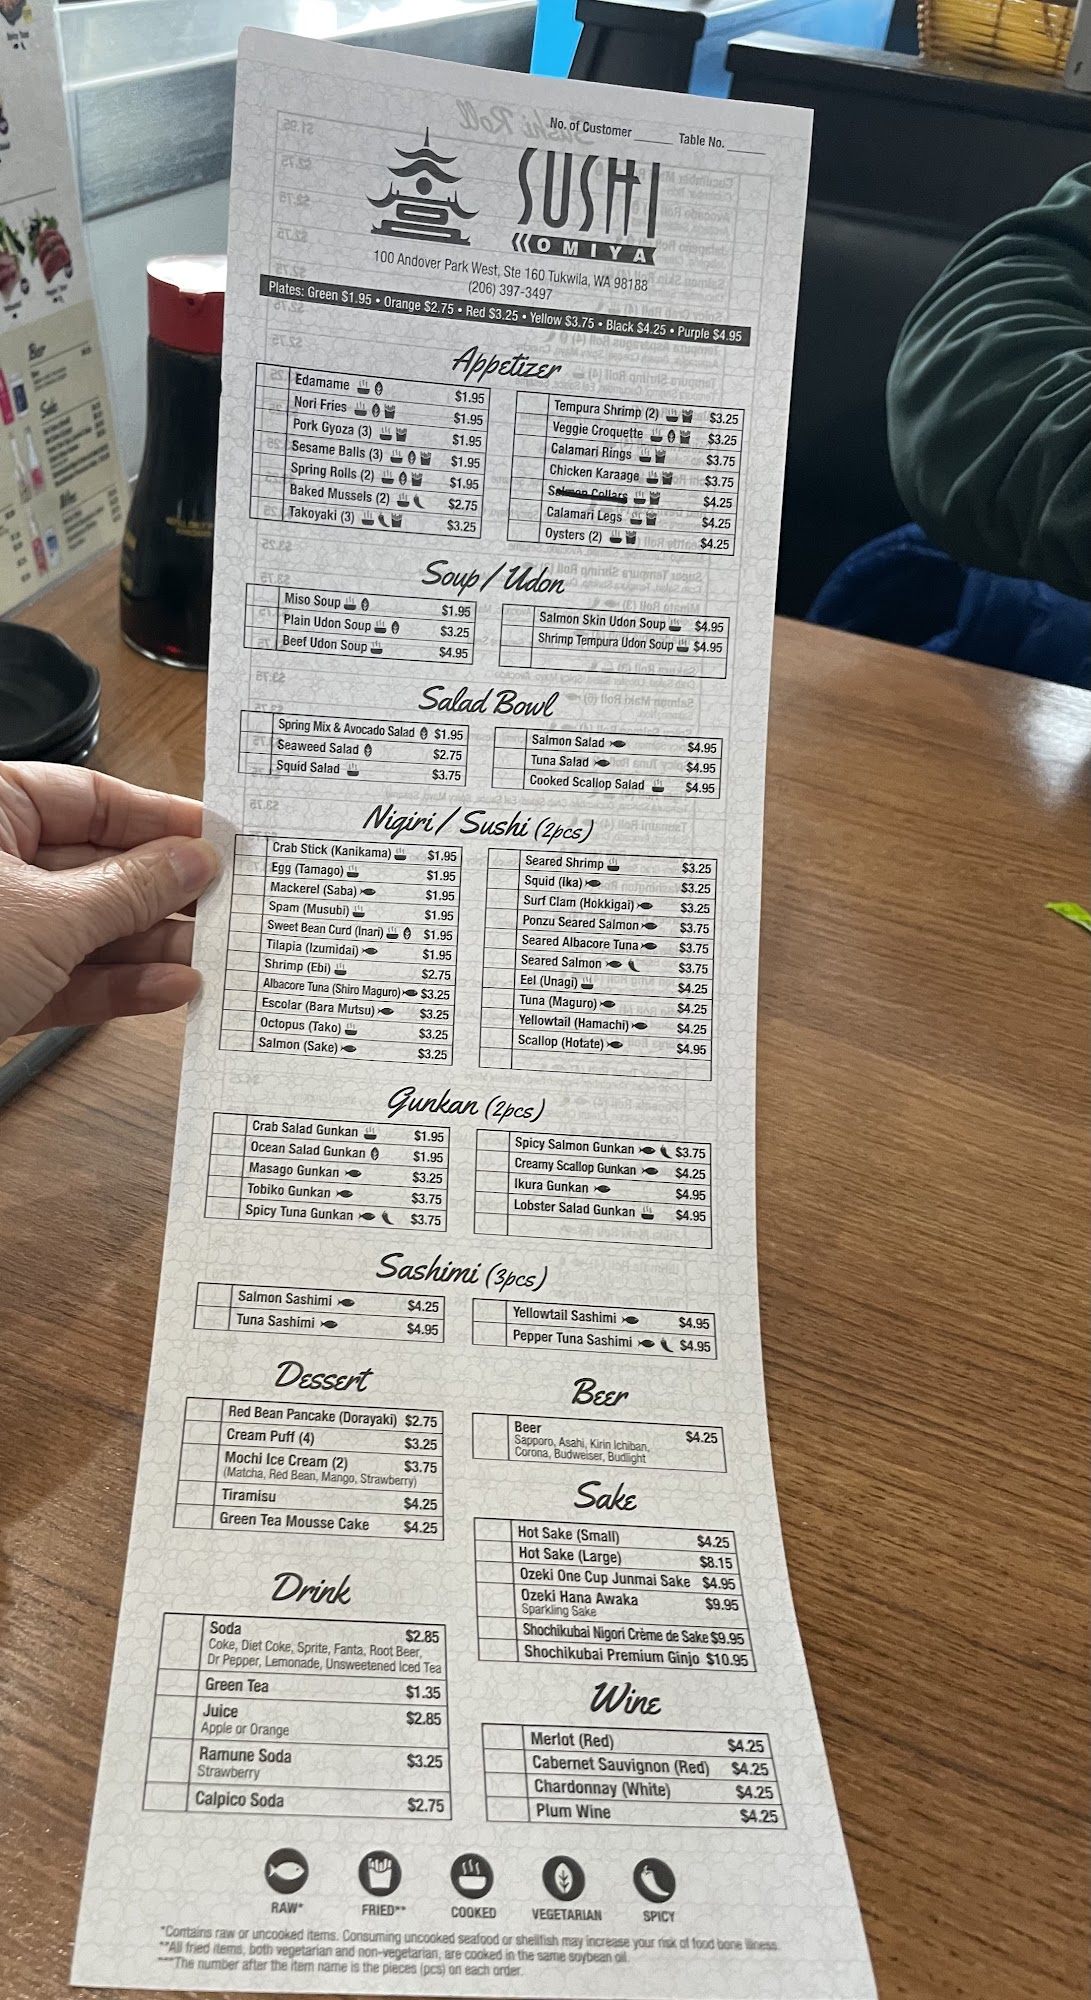 No. of Customer_____ Table No._____
SUSHI
OMIYA
100 Andover Park West, Ste 160 Tukwila, WA 98188
(206) 397-3497
Plates: Green $1.95 • Orange $2.75 • Red $3.25 • Yellow $3.75 • Black $4.25 • Purple $4.95
Appetizer
Edamame $1.95
Nori Fries $1.95
Pork Gyoza (3) $1.95
Sesame Balls (3) $1.95
Spring Rolls (2) $1.95
Baked Mussels (2) $2.75
Takoyaki (3) $3.25
Tempura Shrimp (2) $3.25
Veggie Croquette $3.25
Calamari Rings $3.75
Chicken Karaage $3.75
Salmon Collars $4.25
Calamari Legs $4.25
Oysters (2) $4.25
Soup / Udon
Miso Soup $1.95
Plain Udon Soup $3.25
Beef Udon Soup $4.95
Salmon Skin Udon Soup $4.95
Shrimp Tempura Udon Soup $4.95
Salad Bowl
Spring Mix & Avocado Salad $1.95
Seaweed Salad $2.75
Squid Salad $3.75
Salmon Salad $4.95
Tuna Salad $4.95
Cooked Scallop Salad $4.95
Nigiri / Sushi (2pcs)
Crab Stick (Kanikama) $1.95
Egg (Tamago) $1.95
Mackerel (Saba) $1.95
Spam (Musubi) $1.95
Sweet Bean Curd (Inari) $1.95
Tilapia (Izumidai) $1.95
Shrimp (Ebi) $2.75
Albacore Tuna (Shiro Maguro) $3.25
Escolar (Bara Mutsu) $3.25
Octopus (Tako) $3.25
Salmon (Sake) $3.25
Seared Shrimp $3.25
Squid (Ika) $3.25
Surf Clam (Hokkigai) $3.25
Ponzu Seared Salmon $3.75
Seared Albacore Tuna $3.75
Seared Salmon $3.75
Eel (Unagi) $4.25
Tuna (Maguro) $4.25
Yellowtail (Hamachi) $4.25
Scallop (Hotate) $4.95
Gunkan (2pcs)
Crab Salad Gunkan $1.95
Ocean Salad Gunkan $1.95
Masago Gunkan $3.25
Tobiko Gunkan $3.75
Spicy Tuna Gunkan $3.75
Spicy Salmon Gunkan $3.75
Creamy Scallop Gunkan $4.25
Ikura Gunkan $4.95
Lobster Salad Gunkan $4.95
Sashimi (3pcs)
Salmon Sashimi $4.25
Tuna Sashimi $4.95
Yellowtail Sashimi $4.95
Pepper Tuna Sashimi $4.95
Dessert
Red Bean Pancake (Dorayaki) $2.75
Cream Puff (4) $3.25
Mochi Ice Cream (2) $3.75
(Matcha, Red Bean, Mango, Strawberry)
Tiramisu $4.25
Green Tea Mousse Cake $4.25
Drink
Soda $2.85
Coke, Diet Coke, Sprite, Fanta, Root Beer,
Dr Pepper, Lemonade, Unsweetened Iced Tea
Green Tea $1.35
Juice $2.85
Apple or Orange
Ramune Soda $3.25
Strawberry
Calpico Soda $2.75
Beer
Beer $4.25
Sapporo, Asahi, Kirin Ichiban,
Corona, Budweiser, Budlight
Sake
Hot Sake (Small) $4.25
Hot Sake (Large) $8.15
Ozeki One Cup Junmai Sake $4.95
Ozeki Hana Awaka $9.95
Sparkling Sake
Shochikubai Nigori Crème de Sake $9.95
Shochikubai Premium Ginjo $10.95
Wine
Merlot (Red) $4.25
Cabernet Sauvignon (Red) $4.25
Chardonnay (White) $4.25
Plum Wine $4.25
RAW* FRIED** COOKED VEGETARIAN SPICY
*Contains raw or uncooked items. Consuming uncooked seafood or shellfish may increase your risk of food bone illness.
**All fried items, both vegetarian and non-vegetarian, are cooked in the same soybean oil.
***The number after the item name is the pieces (pcs) on each order.